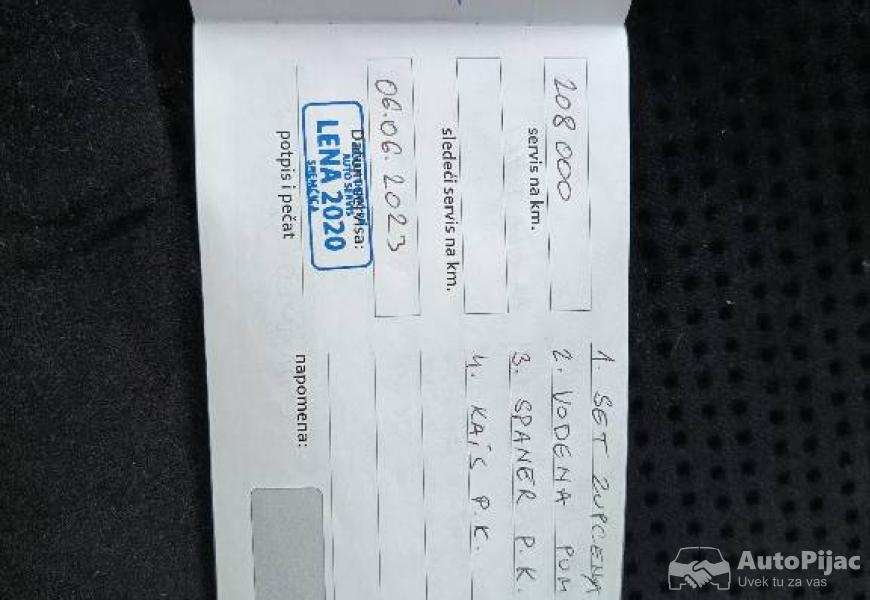 208 000
servis na km.
sledeći servis na km.
06.06.2023
Datum servisa:
AUTO SERVIS
LENA 2020
potpis i pečat
1. SET ZUPCENJA
2. VODENA PUM
3. SPANER P.K.
4. KAIŠ P.K.
napomena:
AutoPijac
Uvek tu za vas